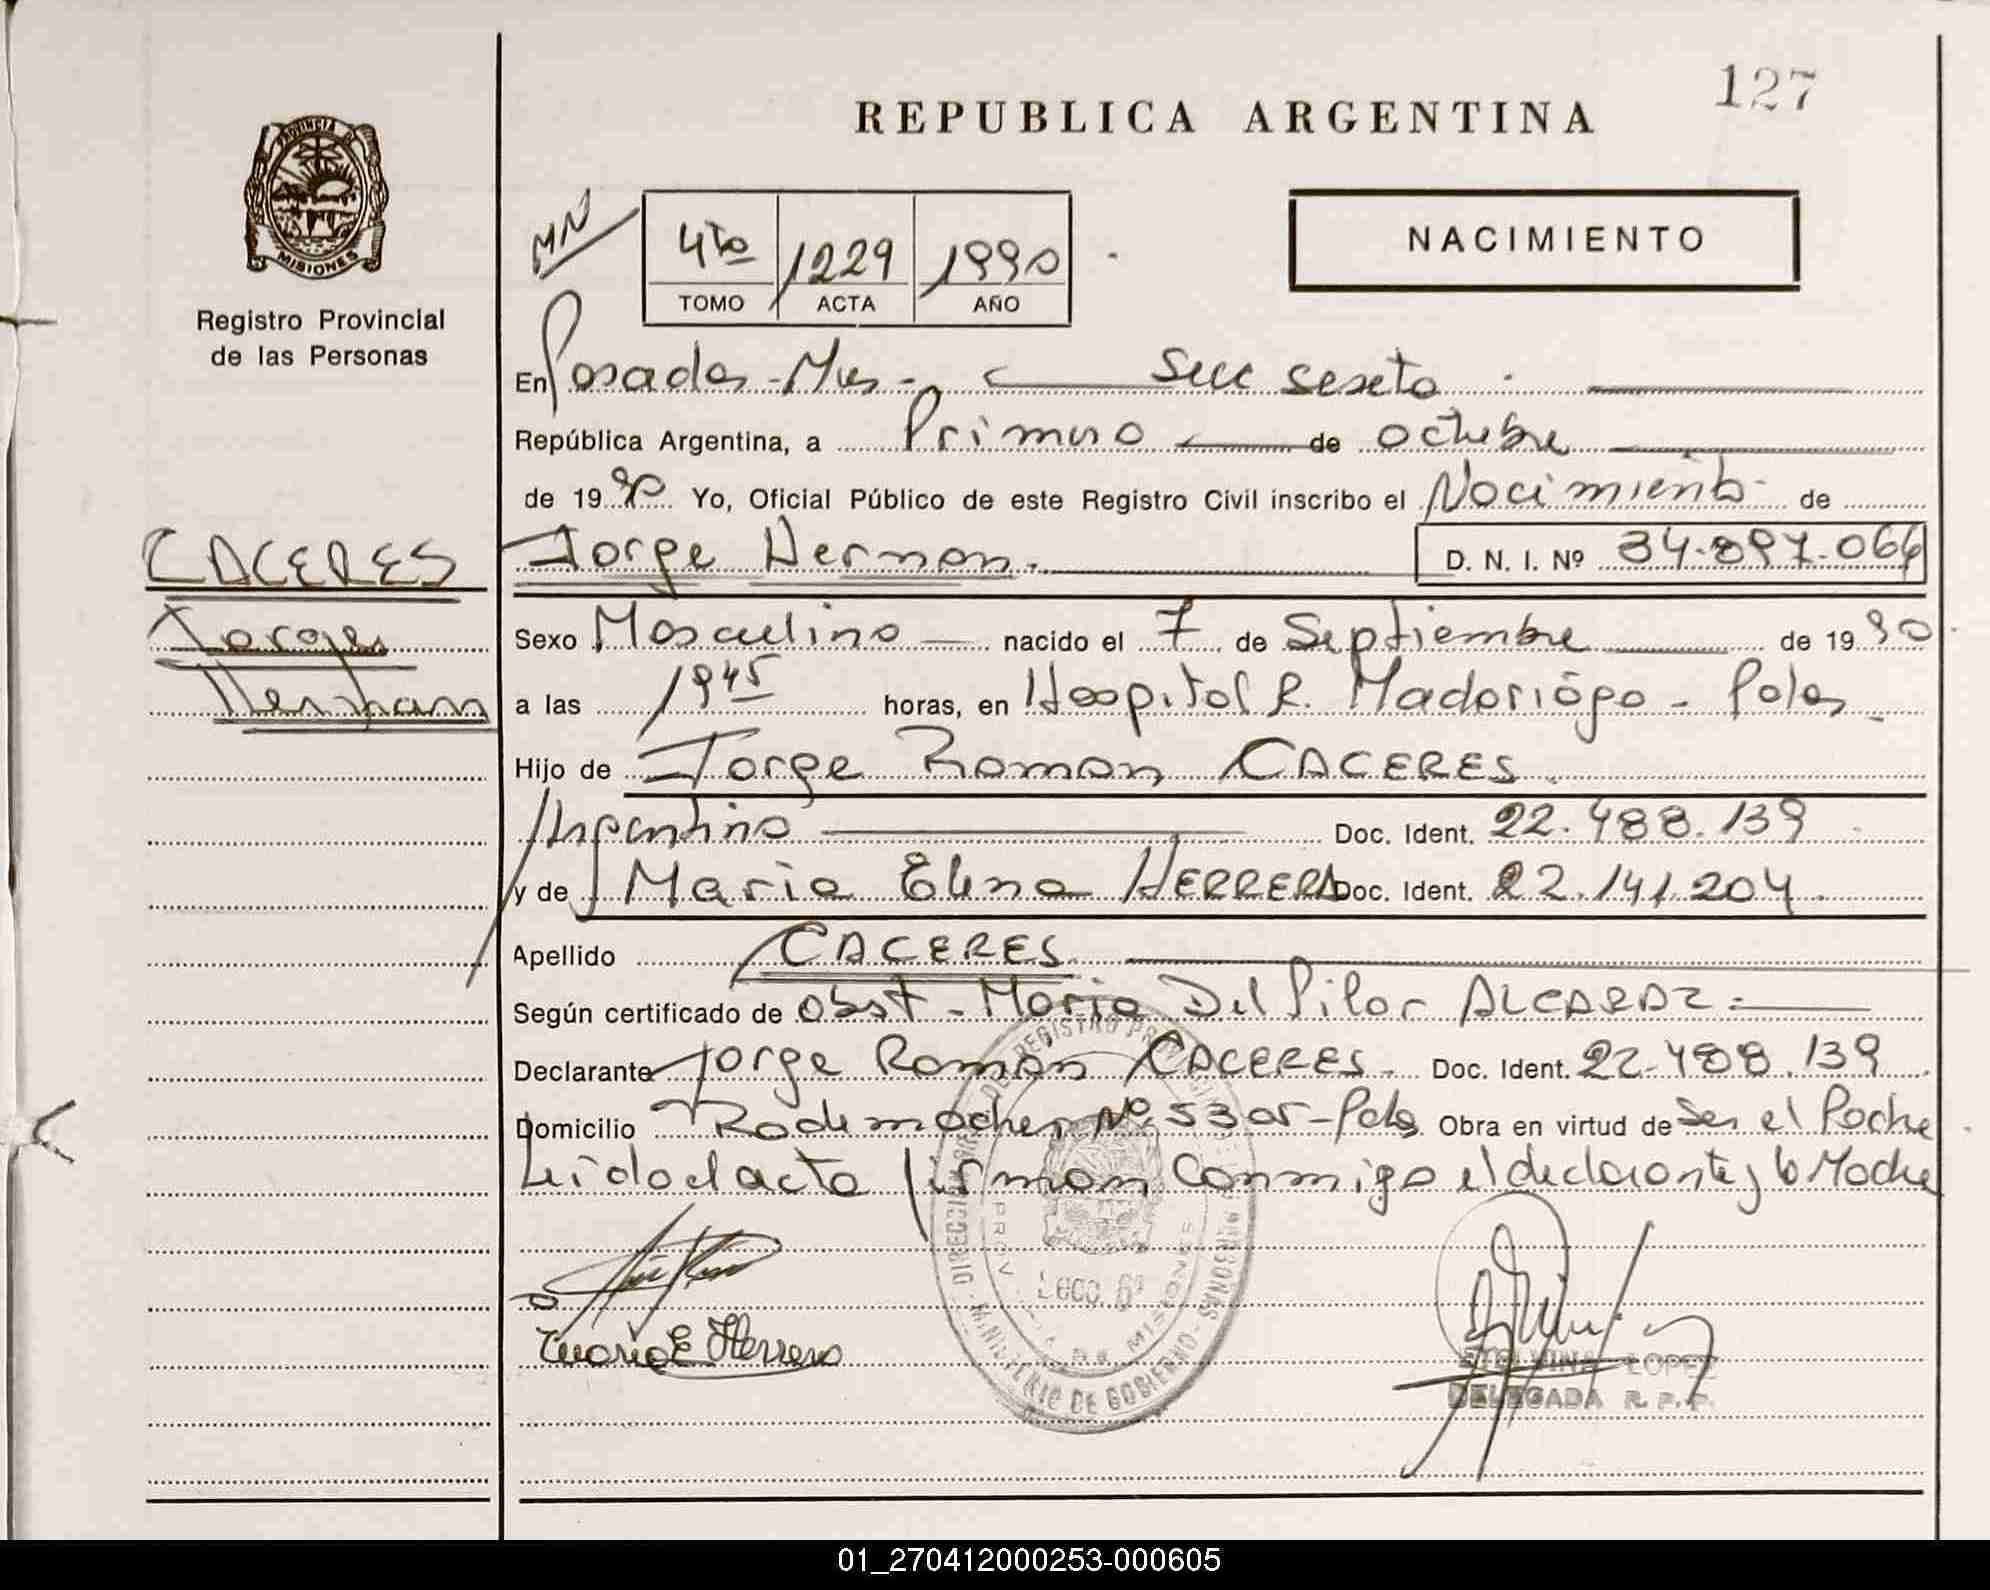 127
REPUBLICA ARGENTINA
PROVINCIA DE
MISIONES
Registro Provincial
de las Personas
MN
4to 1229 1990
TOMO ACTA AÑO
NACIMIENTO
En Posadas - Mnes - Secc sexta
República Argentina, a Primero de octubre
de 1990 Yo, Oficial Público de este Registro Civil inscribo el Nacimiento de
CACERES
Jorge Hernan
Jorge Hernan. D. N. I. Nº 34.897.064
Sexo Masculino nacido el 7 de Septiembre de 1990
a las 1945 horas, en Hospital R. Madariaga - Pdas
Hijo de Jorge Roman CACERES
Argentino Doc. Ident. 22.488.139
y de Maria Elena HERRERA Doc. Ident. 22.141.204
Apellido CACERES
Según certificado de Obst - Maria Del Pilar ALCARAZ
Declarante Jorge Roman CACERES. Doc. Ident. 22.488.139
Domicilio Rademacher Nº 5305 - Pdas Obra en virtud de Ser el Padre
Leido el acta firman conmigo el declarante y la Madre
Maria E Herrera
DIRECCION REGISTRO PROVINCIAL PERSONAS - MINISTERIO DE GOBIERNO
LOPEZ
DELEGADA R. P. P.
01_270412000253-000605